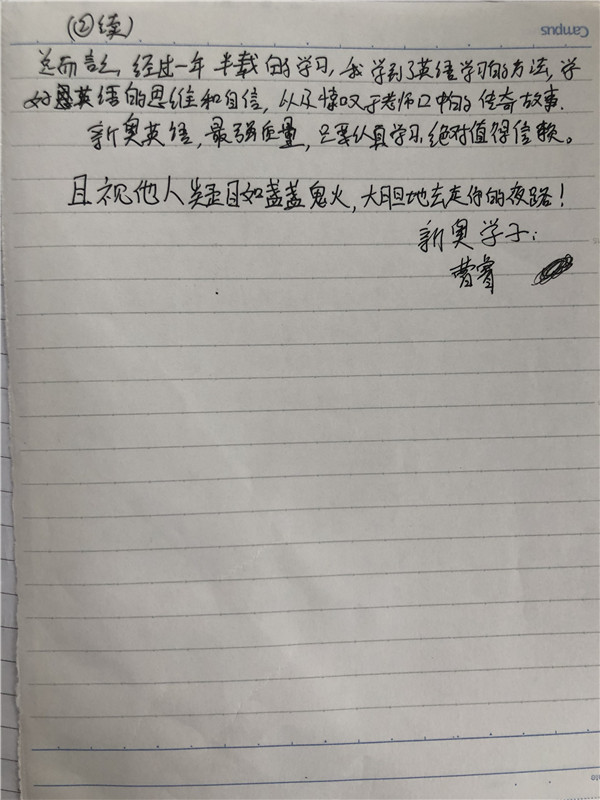 (②续)
Campus
总而言之,经过一年半载的学习,我学到了英语学习的方法,学
好英语的思维和自信,以及惊叹于老师口中的传奇故事.
新奥英语,最强质量,只要认真学习,绝对值得信赖。
且视他人疑目如盏盏鬼火,大胆地去走你的夜路!
新奥学子:
曹睿